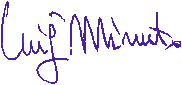 Luigi Minuto